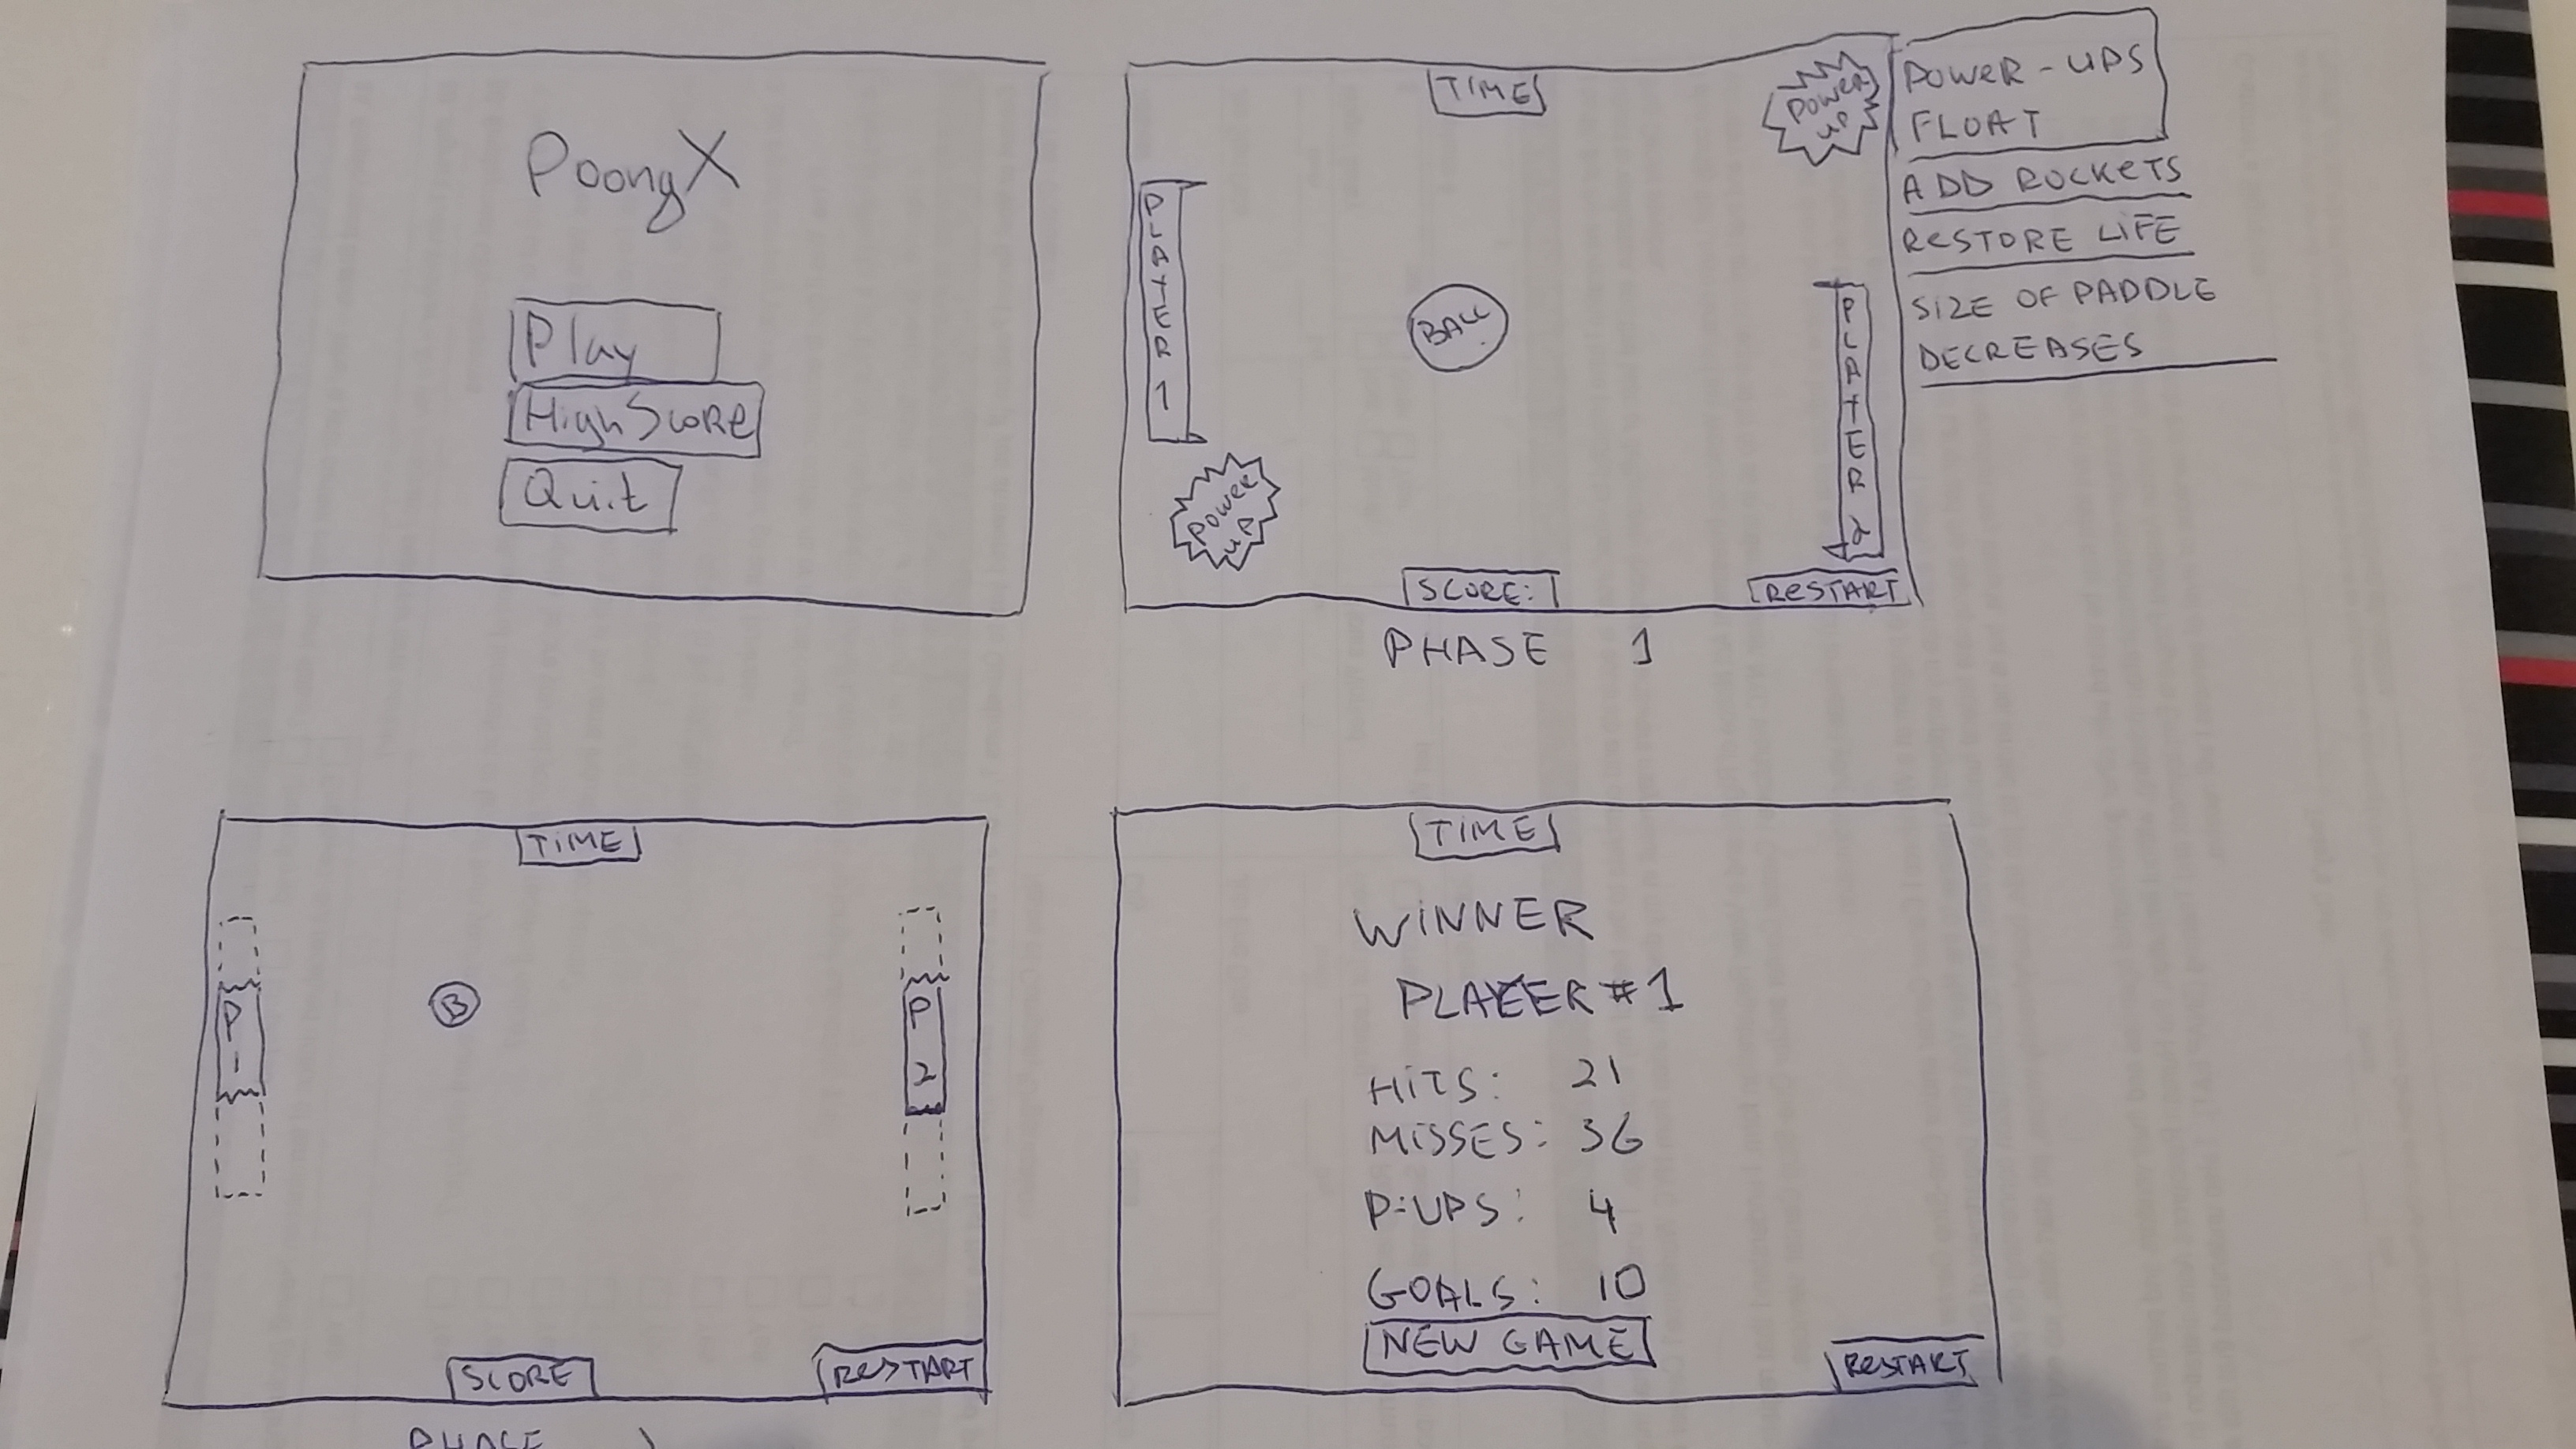 PoongX
Play
HighScore
Quit
TIME
POWER
UP
PLAYER 1
BALL
PLAYER 2
POWER
UP
SCORE:
RESTART
PHASE 1
POWER-UPS
FLOAT
ADD ROCKETS
RESTORE LIFE
SIZE OF PADDLE
DECREASES
TIME
P1
B
P2
SCORE
RESTART
PHASE
TIME
WINNER
PLAYER #1
HITS: 21
MISSES: 36
P-UPS: 4
GOALS: 10
NEW GAME
RESTART